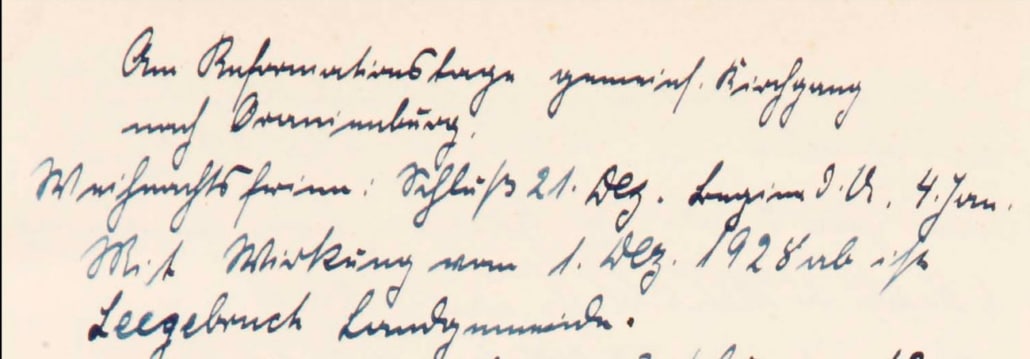 Am Reformationstage gemeins. Kirchgang
nach Oranienburg.
Weihnachtsferien: Schluß 21. Dez. Beginn d. U. 4. Jan.
Mit Wirkung vom 1. Dez. 1928 ab ist
Leegebruch Landgemeinde.